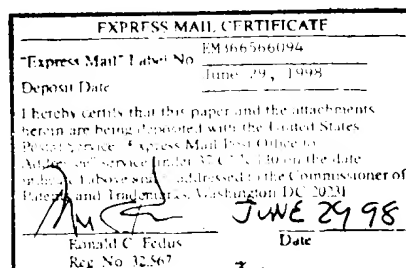 EXPRESS MAIL CERTIFICATE
"Express Mail" Label No. EM366566094
Deposit Date June 29, 1998
I hereby certify that this paper and the attachments
herein are being deposited with the United States
Postal Service "Express Mail Post Office to
Addressee" service under 37 C.F.R. 1.10 on the date
indicated above and is addressed to the Commissioner of
Patents and Trademarks, Washington DC 20231
JUNE 29 98
Ronald C. Fedus Date
Reg. No. 32,567